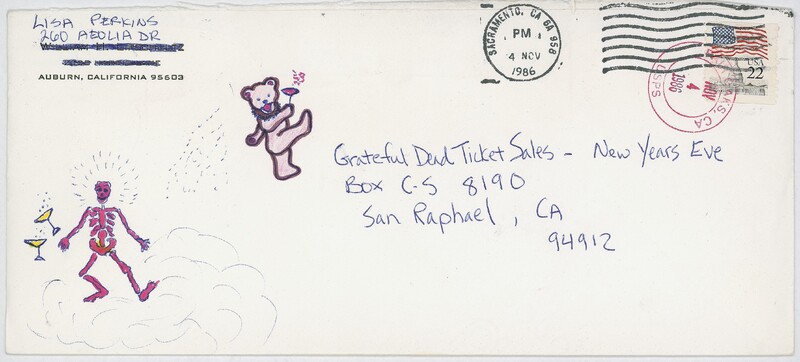 LISA PERKINS
260 AEOLIA DR
AUBURN, CALIFORNIA 95603
SACRAMENTO, CA GA 958
PM
4 NOV
1986
USA
22
CA
NOV
4
1986
USPS
Grateful Dead Ticket Sales - New Years Eve
Box C-S 8190
San Raphael, CA
94912